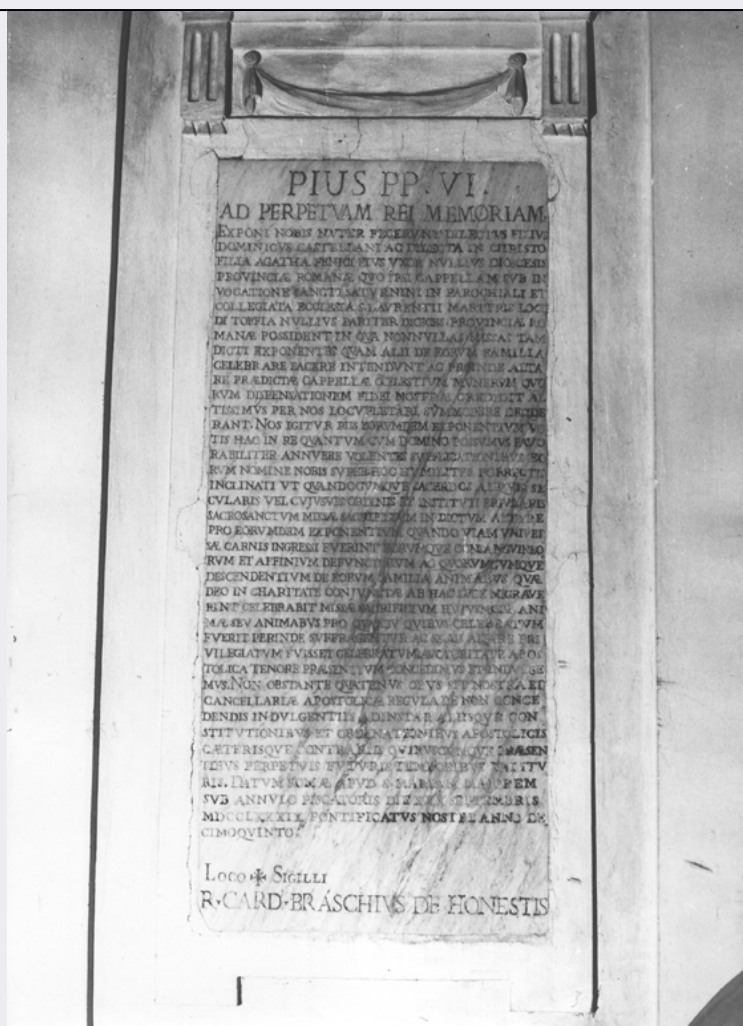 PIUS PP. VI.
AD PERPETVAM REI MEMORIAM.
EXPONI NOBIS NVPER FECERVNT DILECTUS FILIUS
DOMINICVS CASTELLANI AC DILECTA IN CHRISTO
FILIA AGATHA EIUS VXOR NVLLIVS DIŒCESIS
PROVINCIÆ ROMANÆ QVO IPSI CAPPELLAM SVB IN
VOCATIONE SANCTI SATVRNINI IN PAROCHIALI ET
COLLEGIATA ECCLESIA S. LAVRENTII MARTIRIS LOCI
DI TOFFIA NVLLIVS PARITER DIŒCES. PROVINCIÆ RO
MANÆ POSSIDENT IN QVA NONNVLLAS MISSAS TAM
DICTI EXPONENTES QVAM ALII DE EORVM FAMILIA
CELEBRARE FACERE INTENDVNT AC PROINDE ALTA
RE PRÆDICTÆ CAPPELLÆ CŒLESTIVM MVNERVM QVO
RVM DISPENSATIONEM FIDEI NOSTRÆ CREDIDIT AL
TISSIMVS PER NOS LOCVPLETARI SVMMOPERE DESIDE
RANT. NOS IGITVR PIIS EORVMDEM EXPONENTIVM VO
TIS HAC IN RE QVANTVM CVM DOMINO POSSVMVS FAVO
RABILITER ANNVERE VOLENTES SVPPLICATIONIBVS EO
RVM NOMINE NOBIS SVPER HOC HVMILITER PORRECTIS
INCLINATI VT QVANDOCVMQVE SACERDOS ALIQVIS SE
CULARIS VEL CVJVSVIS ORDINIS ET INSTITVTI REGVLARIS
SACROSANCTVM MISSÆ SACRIFICIVM IN DICTVM ALTARE
PRO EORVMDEM EXPONENTIVM QVANDO VIAM VNIVER
SÆ CARNIS INGRESSI FVERINT EORVMQVE CONSANGVINEO
RVM ET AFFINIVM DEFVNCTORVM AC QVORVMCVMQVE
DESCENDENTIVM DE EORVM FAMILIA ANIMABVS QVÆ
DEO IN CHARITATE CONJVNCTÆ AB HAC LVCE MIGRAVE
RINT CELEBRABIT MISSÆ SACRIFICIVM HVJVSMODI ANI
MÆ SEV ANIMABVS PRO QVA SEV QVIBVS CELEBRATVM
FVERIT PERINDE SVFFRAGENTVR AC SI AD ALTARE PRI
VILEGIATVM FVISSET CELEBRATVM AVCTORITATE APOS
TOLICA TENORE PRÆSENTIVM CONCEDIMVS ET INDVLGE
MVS. NON OBSTANTE QVATENVS OPVS SIT NOSTRA ET
CANCELLARIÆ APOSTOLICÆ REGVLA DE NON CONCE
DENDIS INDVLGENTIIS AD INSTAR ALIISQVE CON
STITVTIONIBVS ET ORDINATIONIBVS APOSTOLICIS
CÆTERISQVE CONTRARIIS QVIBVSCVMQVE PRÆSEN
TIBVS PERPETVIS FVTVRIS TEMPORIBVS VALITV
RIS. DATVM ROMÆ APVD S. MARIAM MAJOREM
SVB ANNVLO PISCATORIS DIE SEPTEMBRIS
MDCCLXXXIX PONTIFICATVS NOSTRI ANNO DE
CIMOQVINTO.
LOCO ✠ SIGILLI
R. CARD. BRASCHIVS DE HONESTIS
3